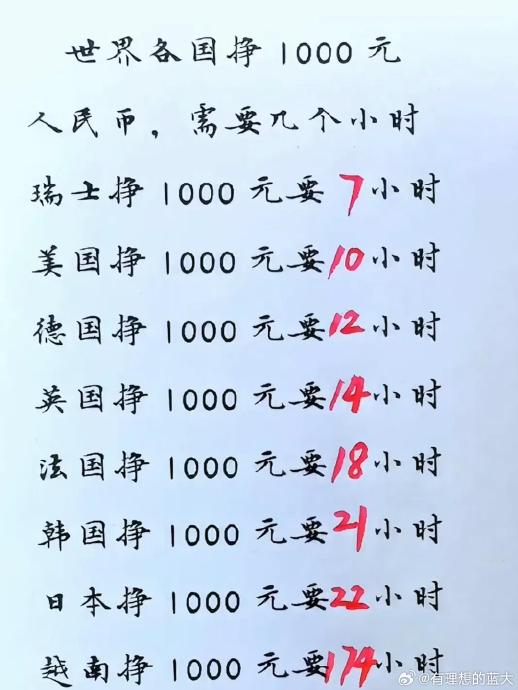 世界各国挣1000元
人民币，需要几个小时
瑞士挣1000元要7小时
美国挣1000元要10小时
德国挣1000元要12小时
英国挣1000元要14小时
法国挣1000元要18小时
韩国挣1000元要21小时
日本挣1000元要22小时
越南挣1000元要174小时
@有理想的蓝大